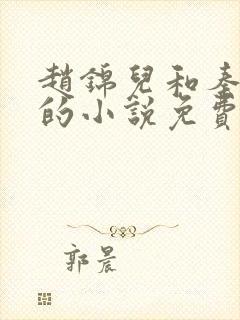 趙錦兒和秦
的小說免費
郭晨